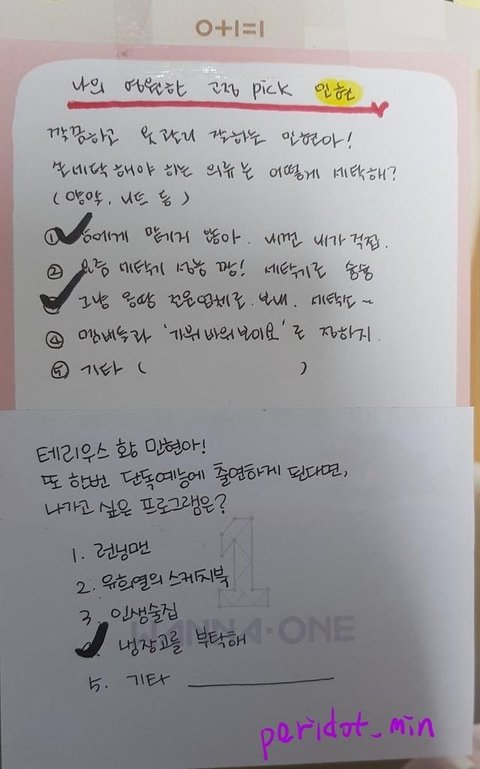 0+1=1
나의 영원한 고정 pick 민현
깍끔하고 옷관리 잘하는 민현아!
손세탁 해야 하는 의류는 어떻게 세탁해?
(양말, 니트 등)
① 에게 맡기지 않아. 내껀 내가 직접.
② 요즘 세탁기 성능 짱! 세탁기로 슝슝
그냥 몽땅 전문업체로 보내. 세탁도~
④ 멤버들과 '가위바위보이요'로 정하지.
⑤ 기타 ( )
테리우스 황 민현아!
또 한번 단독예능에 출연하게 된다면,
나가고 싶은 프로그램은?
1. 런닝맨
2. 유희열의 스케치북
3. 인생술집
냉장고를 부탁해
5. 기타 ____________
WANNA·ONE
peridot_min